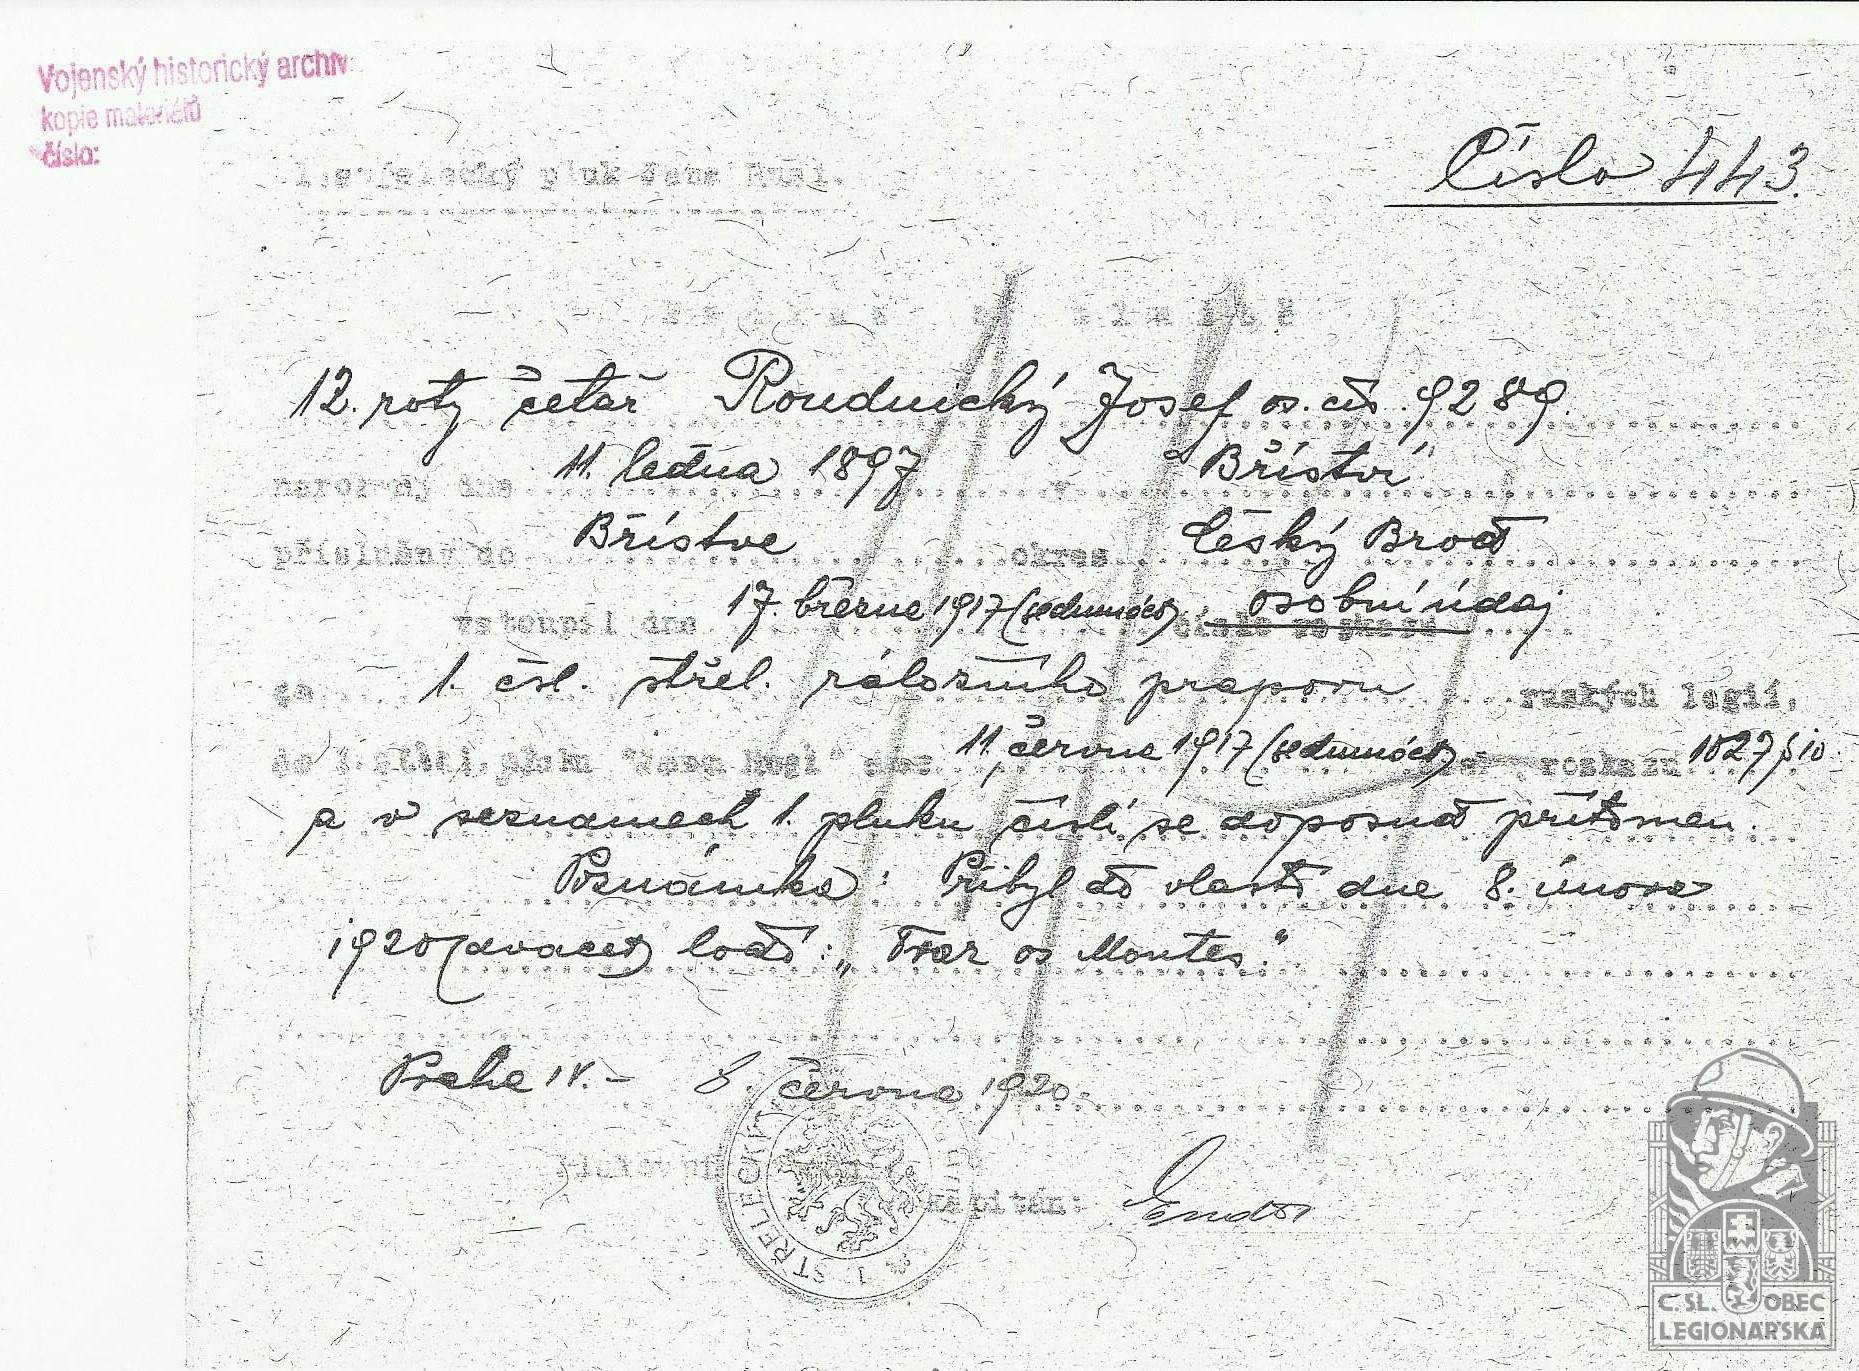 Vojenský historický archiv
kopie materiálů
číslo:
Číslo 443.
1. střelecký pluk Jana Husi.
12. roty četař Roudnický Josef os. čís. 9289.
narozený dne 11. ledna 1897 v Bříství
příslušný do Bříství okres Český Brod
vstoupil dne 17. března 1917 (sedmnáct) osobní údaj
do 1. čsl. střel. záložního praporu ruských legií,
do 1. střel. pluku "Jana Husi" dne 11. června 1917 (sedmnáct) rozkazu 1027 §10
a v seznamech 1. pluku čísli se doposud přítomen.
Poznámka: Přibyl do vlasti dne 8. února
1920 (dvacet) lodí: „Traz os Montes."
Praha IV. - 8. června 1920.
kapitán:
STŘELECKÝ
C. SL. OBEC
LEGIONÁŘSKÁ